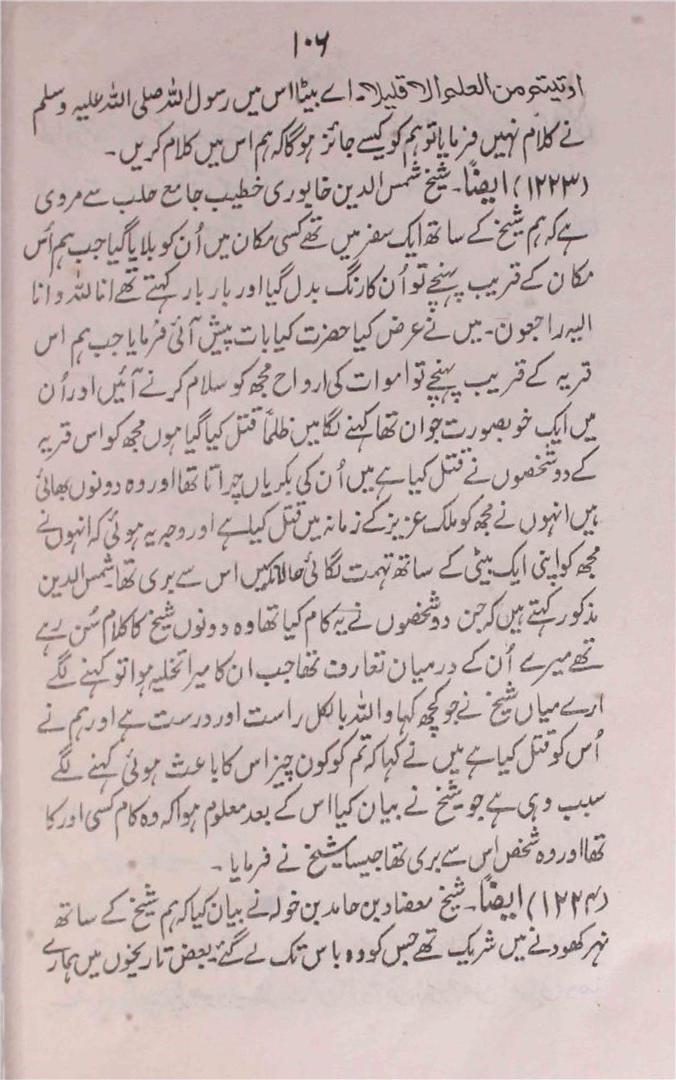 ۱۰۶
اوتیتم من العلم الا قلیلا۔ اے بیٹا اس میں رسول اللہ صلی اللہ علیہ وسلم
نے کلام نہیں فرمایا تو ہم کو کیسے جائز ہوگا کہ ہم اس میں کلام کریں۔
(۱۲۲۳) ایضًا۔ شیخ شمس الدین خابوری خطیب جامع حلب سے مروی
ہے کہ ہم شیخ کے ساتھ ایک سفر میں تھے کسی مکان میں اُن کو بلایا گیا جب ہم اُس
مکان کے قریب پہنچے تو اُن کا رنگ بدل گیا اور بار بار کہتے تھے انا للہ و انا
الیہ راجعون۔ میں نے عرض کیا حضرت کیا بات پیش آئی فرمایا جب ہم اس
قریہ کے قریب پہنچے تو اموات کی ارواح مجھ کو سلام کرنے آئیں اور اُن
میں ایک خوبصورت جوان تھا کہنے لگا میں ظلمًا قتل کیا گیا ہوں مجھ کو اس قریہ
کے دو شخصوں نے قتل کیا ہے میں اُن کی بکریاں چراتا تھا اور وہ دونوں بھائی
ہیں انہوں نے مجھ کو ملک عزیز کے زمانہ میں قتل کیا ہے اور وجہ یہ ہوئی کہ انہوں نے
مجھ کو اپنی ایک بیٹی کے ساتھ تہمت لگائی حالانکہ میں اس سے بری تھا۔ شمس الدین
مذکور کہتے ہیں کہ جن دو شخصوں نے یہ کام کیا تھا وہ دونوں شیخ کا کلام سُن رہے
تھے میرے اُن کے درمیان تعارف تھا جب ان کا میرا تخلیہ ہوا تو کہنے لگے
ارے میاں شیخ نے جو کچھ کہا واللہ بالکل راست اور درست ہے اور ہم نے
اُس کو قتل کیا ہے میں نے کہا کہ تم کو کون چیز اس کا باعث ہوئی کہنے لگے
سبب وہی ہے جو شیخ نے بیان کیا اس کے بعد معلوم ہوا کہ وہ کام کسی اور کا
تھا اور وہ شخص اس سے بری تھا جیسا شیخ نے فرمایا۔
(۱۲۲۴) ایضًا۔ شیخ معضاد بن حامد بن خولہ نے بیان کیا کہ ہم شیخ کے ساتھ
نہر کھودنے میں شریک تھے جس کو وہ باس تک لے گئے بعض تاریخوں میں ہمارے